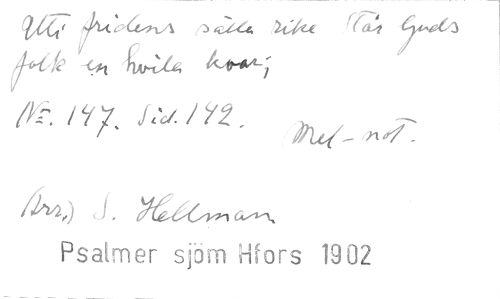 Uti fridens sälla rike står Guds
folk en hvila kvar;
No. 147. Sid. 142.
Mel-not.
(Arr.) S. Hellman
Psalmer sjöm Hfors 1902